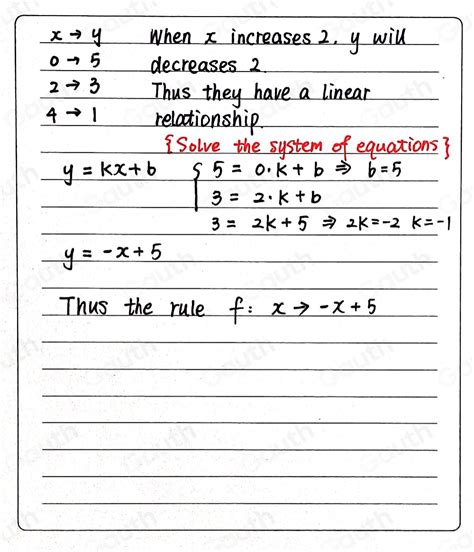 x → y When x increases 2. y will
0 → 5 decreases 2.
2 → 3 Thus they have a linear
4 → 1 relationship.
{Solve the system of equations}
y = kx+b { 5 = 0·k + b ⇒ b=5
3 = 2·k+b
3 = 2k+5 ⇒ 2k=-2 k=-1
y = -x+5
Thus the rule f: x → -x+5